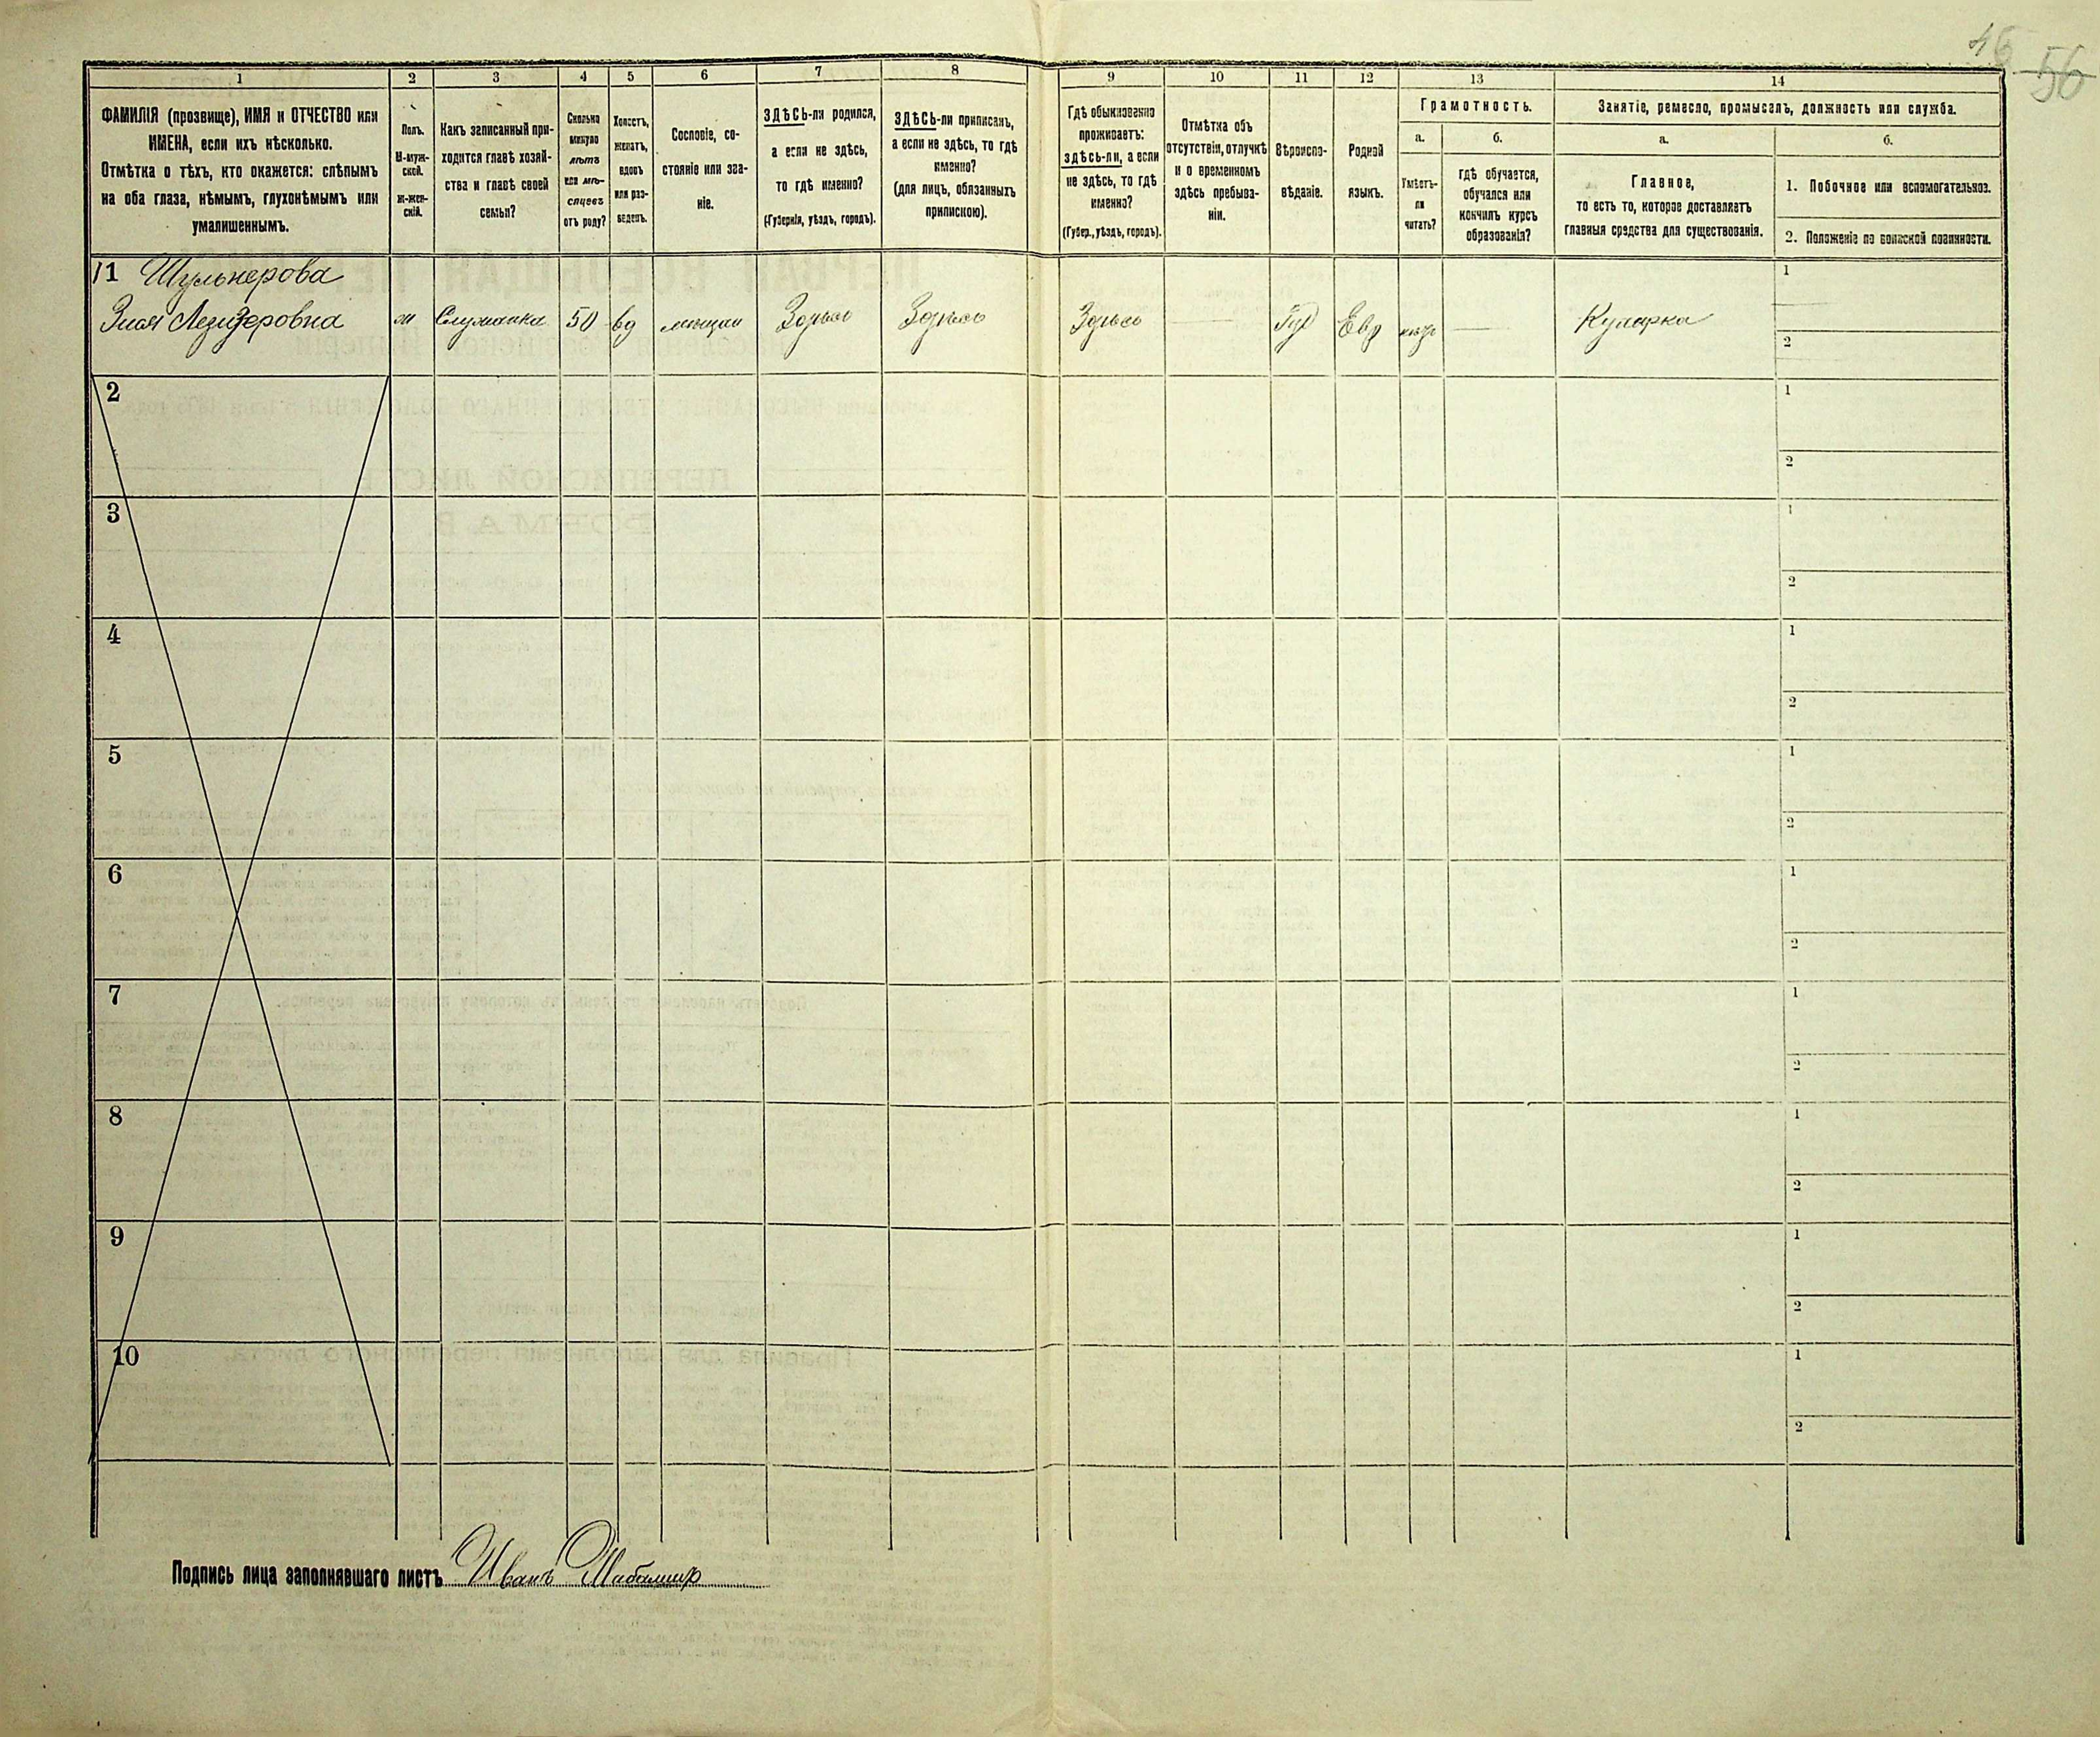 56
1
2
3
4
5
6
7
8
9
10
11
12
13
14
ФАМИЛІЯ (прозвище), ИМЯ и ОТЧЕСТВО или
ИМЕНА, если ихъ нѣсколько.
Отмѣтка о тѣхъ, кто окажется: слѣпымъ
на оба глаза, нѣмымъ, глухонѣмымъ или
умалишеннымъ.
Полъ.
М-муж-
ской.
ж-жен-
скій.
Какъ записанный при-
ходится главѣ хозяй-
ства и главѣ своей
семьи?
Сколько
минуло
лѣтъ
или мѣ-
сяцевъ
отъ роду?
Холостъ,
женатъ,
вдовъ
или раз-
веденъ.
Сословіе, со-
стояніе или зва-
ніе.
ЗДѢСЬ-ли родился,
а если не здѣсь,
то гдѣ именно?
(Губернія, уѣздъ, городъ).
ЗДѢСЬ-ли приписанъ,
а если не здѣсь, то гдѣ
именно?
(для лицъ, обязанныхъ
припискою).
Гдѣ обыкновенно
проживаетъ:
здѣсь-ли, а если
не здѣсь, то гдѣ
именно?
(Губер., уѣздъ, городъ).
Отмѣтка объ
отсутствіи, отлучкѣ
и о временномъ
здѣсь пребыва-
ніи.
Вѣроиспо-
вѣданіе.
Родной
языкъ.
Грамотность.
а.
Умѣетъ-
ли
читать?
б.
гдѣ обучается,
обучался или
кончилъ курсъ
образованія?
Занятіе, ремесло, промыселъ, должность или служба.
а.
Главное,
то есть то, которое доставляетъ
главныя средства для существованія.
б.
1. Побочное или вспомогательное.
2. Положеніе по воинской повинности.
1 Шульнерова
Злая Лейзеровна
Служанка
50
вд
мещан
Здѣсь
Здѣсь
Здѣсь
Іуд
Евр
Кухарка
1
2
2
1
2
3
1
2
4
1
2
5
1
2
6
1
2
7
1
2
8
1
2
9
1
2
10
1
2
Подпись лица заполнявшаго листъ Иванъ